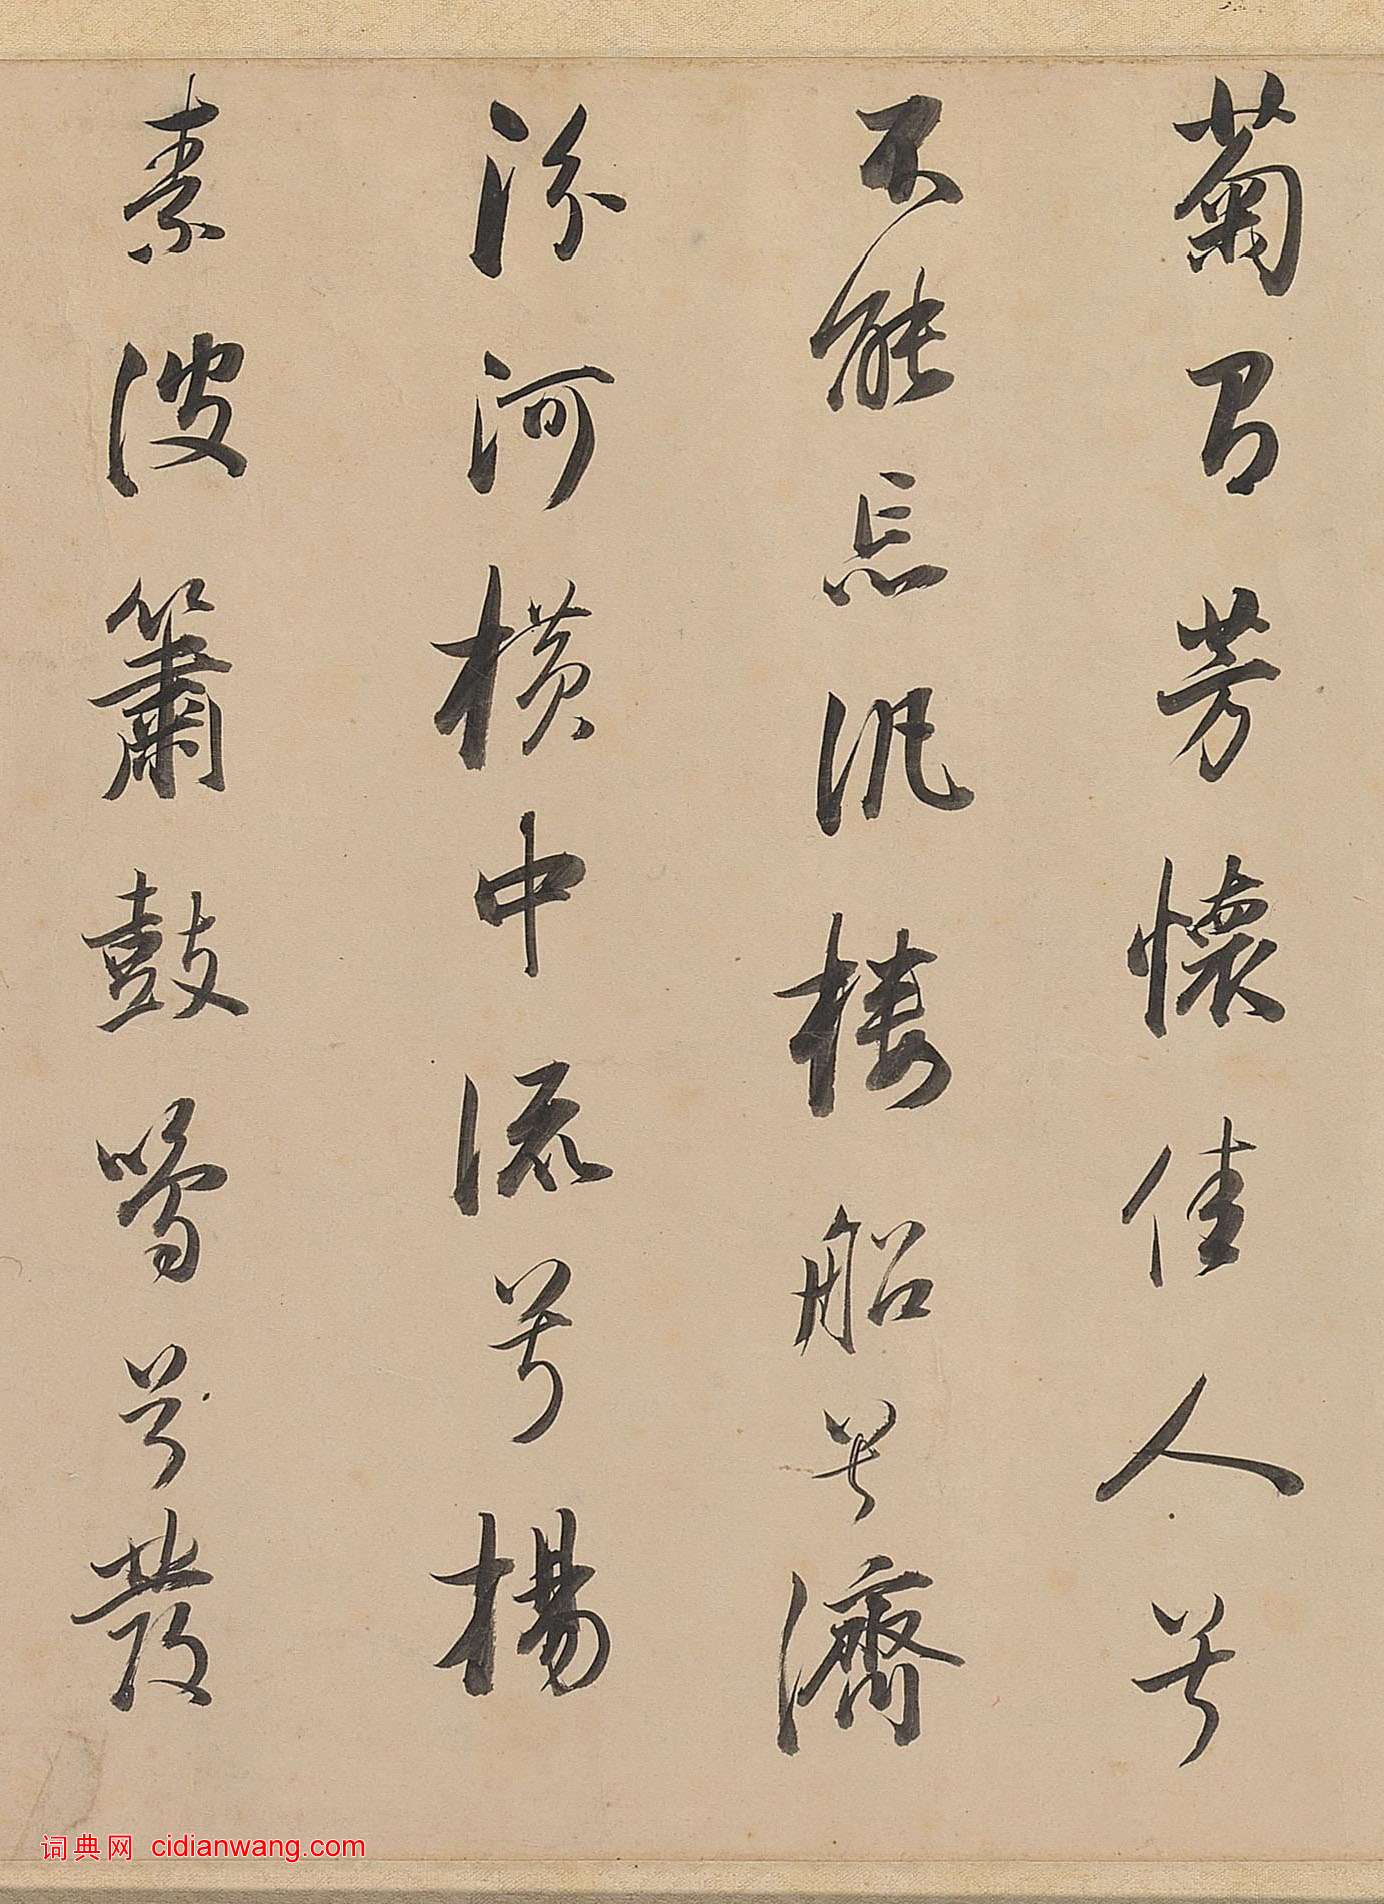 菊有芳懷佳人兮
不能忘汎樓船兮濟
汾河橫中流兮揚
素波簫鼓鳴兮發
词典网 cidianwang.com